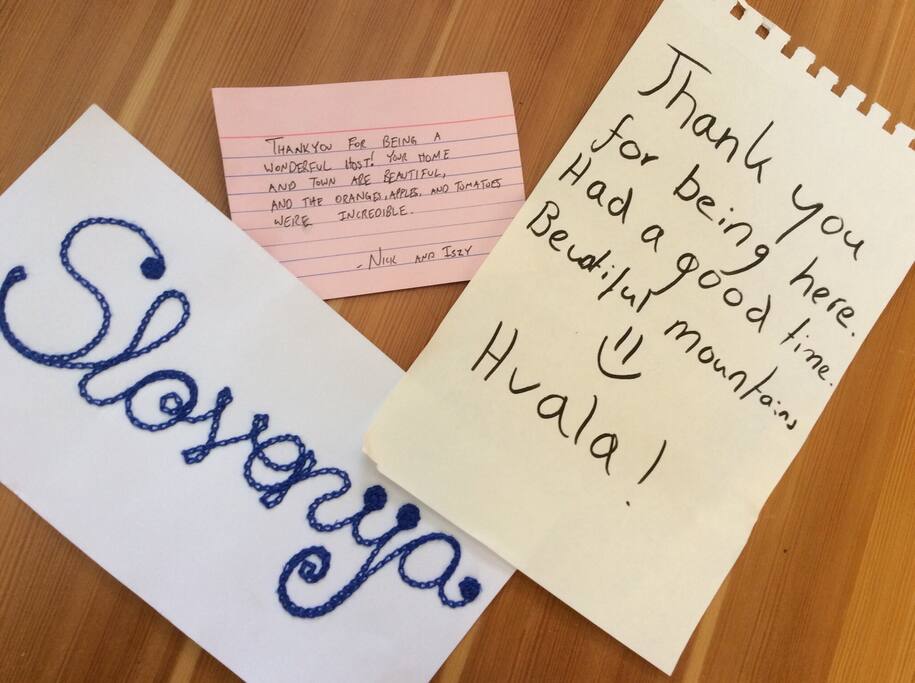 Slovenija
THANKYOU FOR BEING A
WONDERFUL HOST! YOUR HOME
AND TOWN ARE BEAUTIFUL,
AND THE ORANGES, APPLES, AND TOMATOES
WERE INCREDIBLE.
- NICK AND ISZY
Thank you
for being here.
Had a good time.
Beautiful mountains
Hvala!